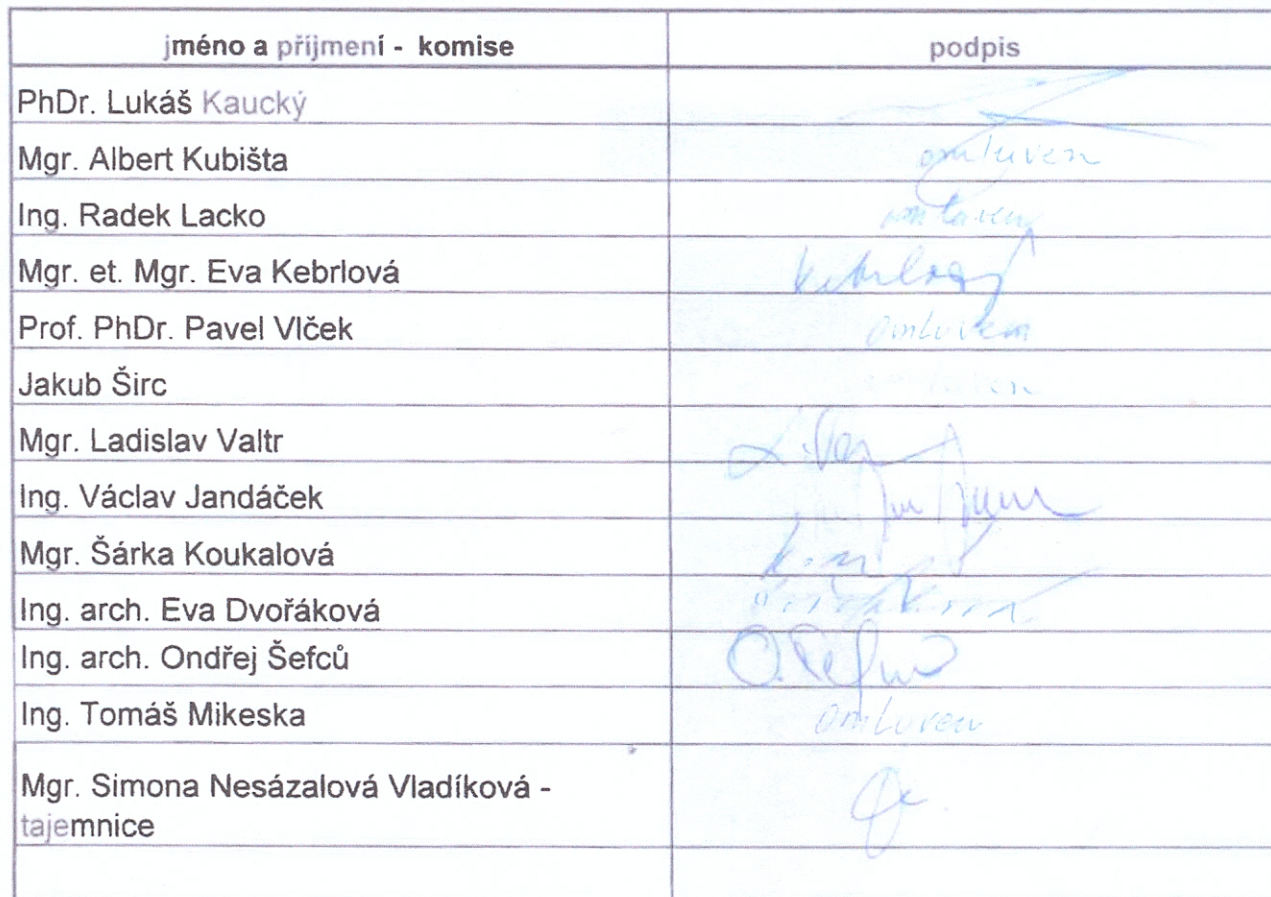 jméno a příjmení - komise podpis
PhDr. Lukáš Kaucký
Mgr. Albert Kubišta omluven
Ing. Radek Lacko omluven
Mgr. et. Mgr. Eva Kebrlová Kebrlová
Prof. PhDr. Pavel Vlček omluven
Jakub Širc omluven
Mgr. Ladislav Valtr
Ing. Václav Jandáček
Mgr. Šárka Koukalová
Ing. arch. Eva Dvořáková
Ing. arch. Ondřej Šefců O. Šefců
Ing. Tomáš Mikeska omluven
Mgr. Simona Nesázalová Vladíková -
tajemnice